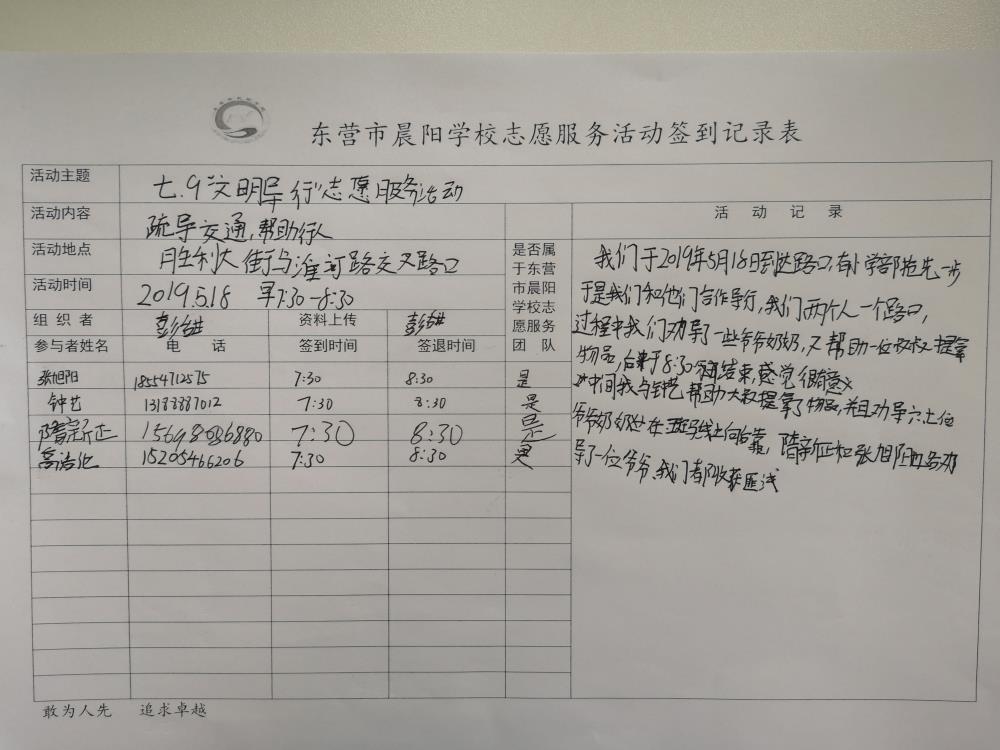 东营市晨阳学校志愿服务活动签到记录表
活动主题 七.9"文明导行"志愿服务活动
活动内容 疏导交通,帮助行人
活动地点 胜利大街与淮河路交叉路口
活动时间 2019.5.18 早7:30-8:30
组织者 资料上传
参与者姓名 电话 签到时间 签退时间
是否属于东营市晨阳学校志愿服务团队
张旭阳 18554712575 7:30 8:30 是
钟艺 13188887012 7:30 8:30 是
隋新正 15698036880 7:30 8:30 是
15205466206 7:30 8:30 是
活动记录
我们于2019年5月18日到达路口,有小学部抢先一步
于是我们和他们合作导行,我们两个人一个路口,
过程中我们劝导了一些爷爷奶奶,又帮助一位 提拿
物品,后来于8:30 结束,感觉很有意义
中间我与钟艺帮助大叔提拿了物品,并且劝导六七位
爷爷奶奶 在斑马线上向右靠,隋新正和张旭阳 劝
导了一位爷爷、我们都收获匪浅
敢为人先 追求卓越